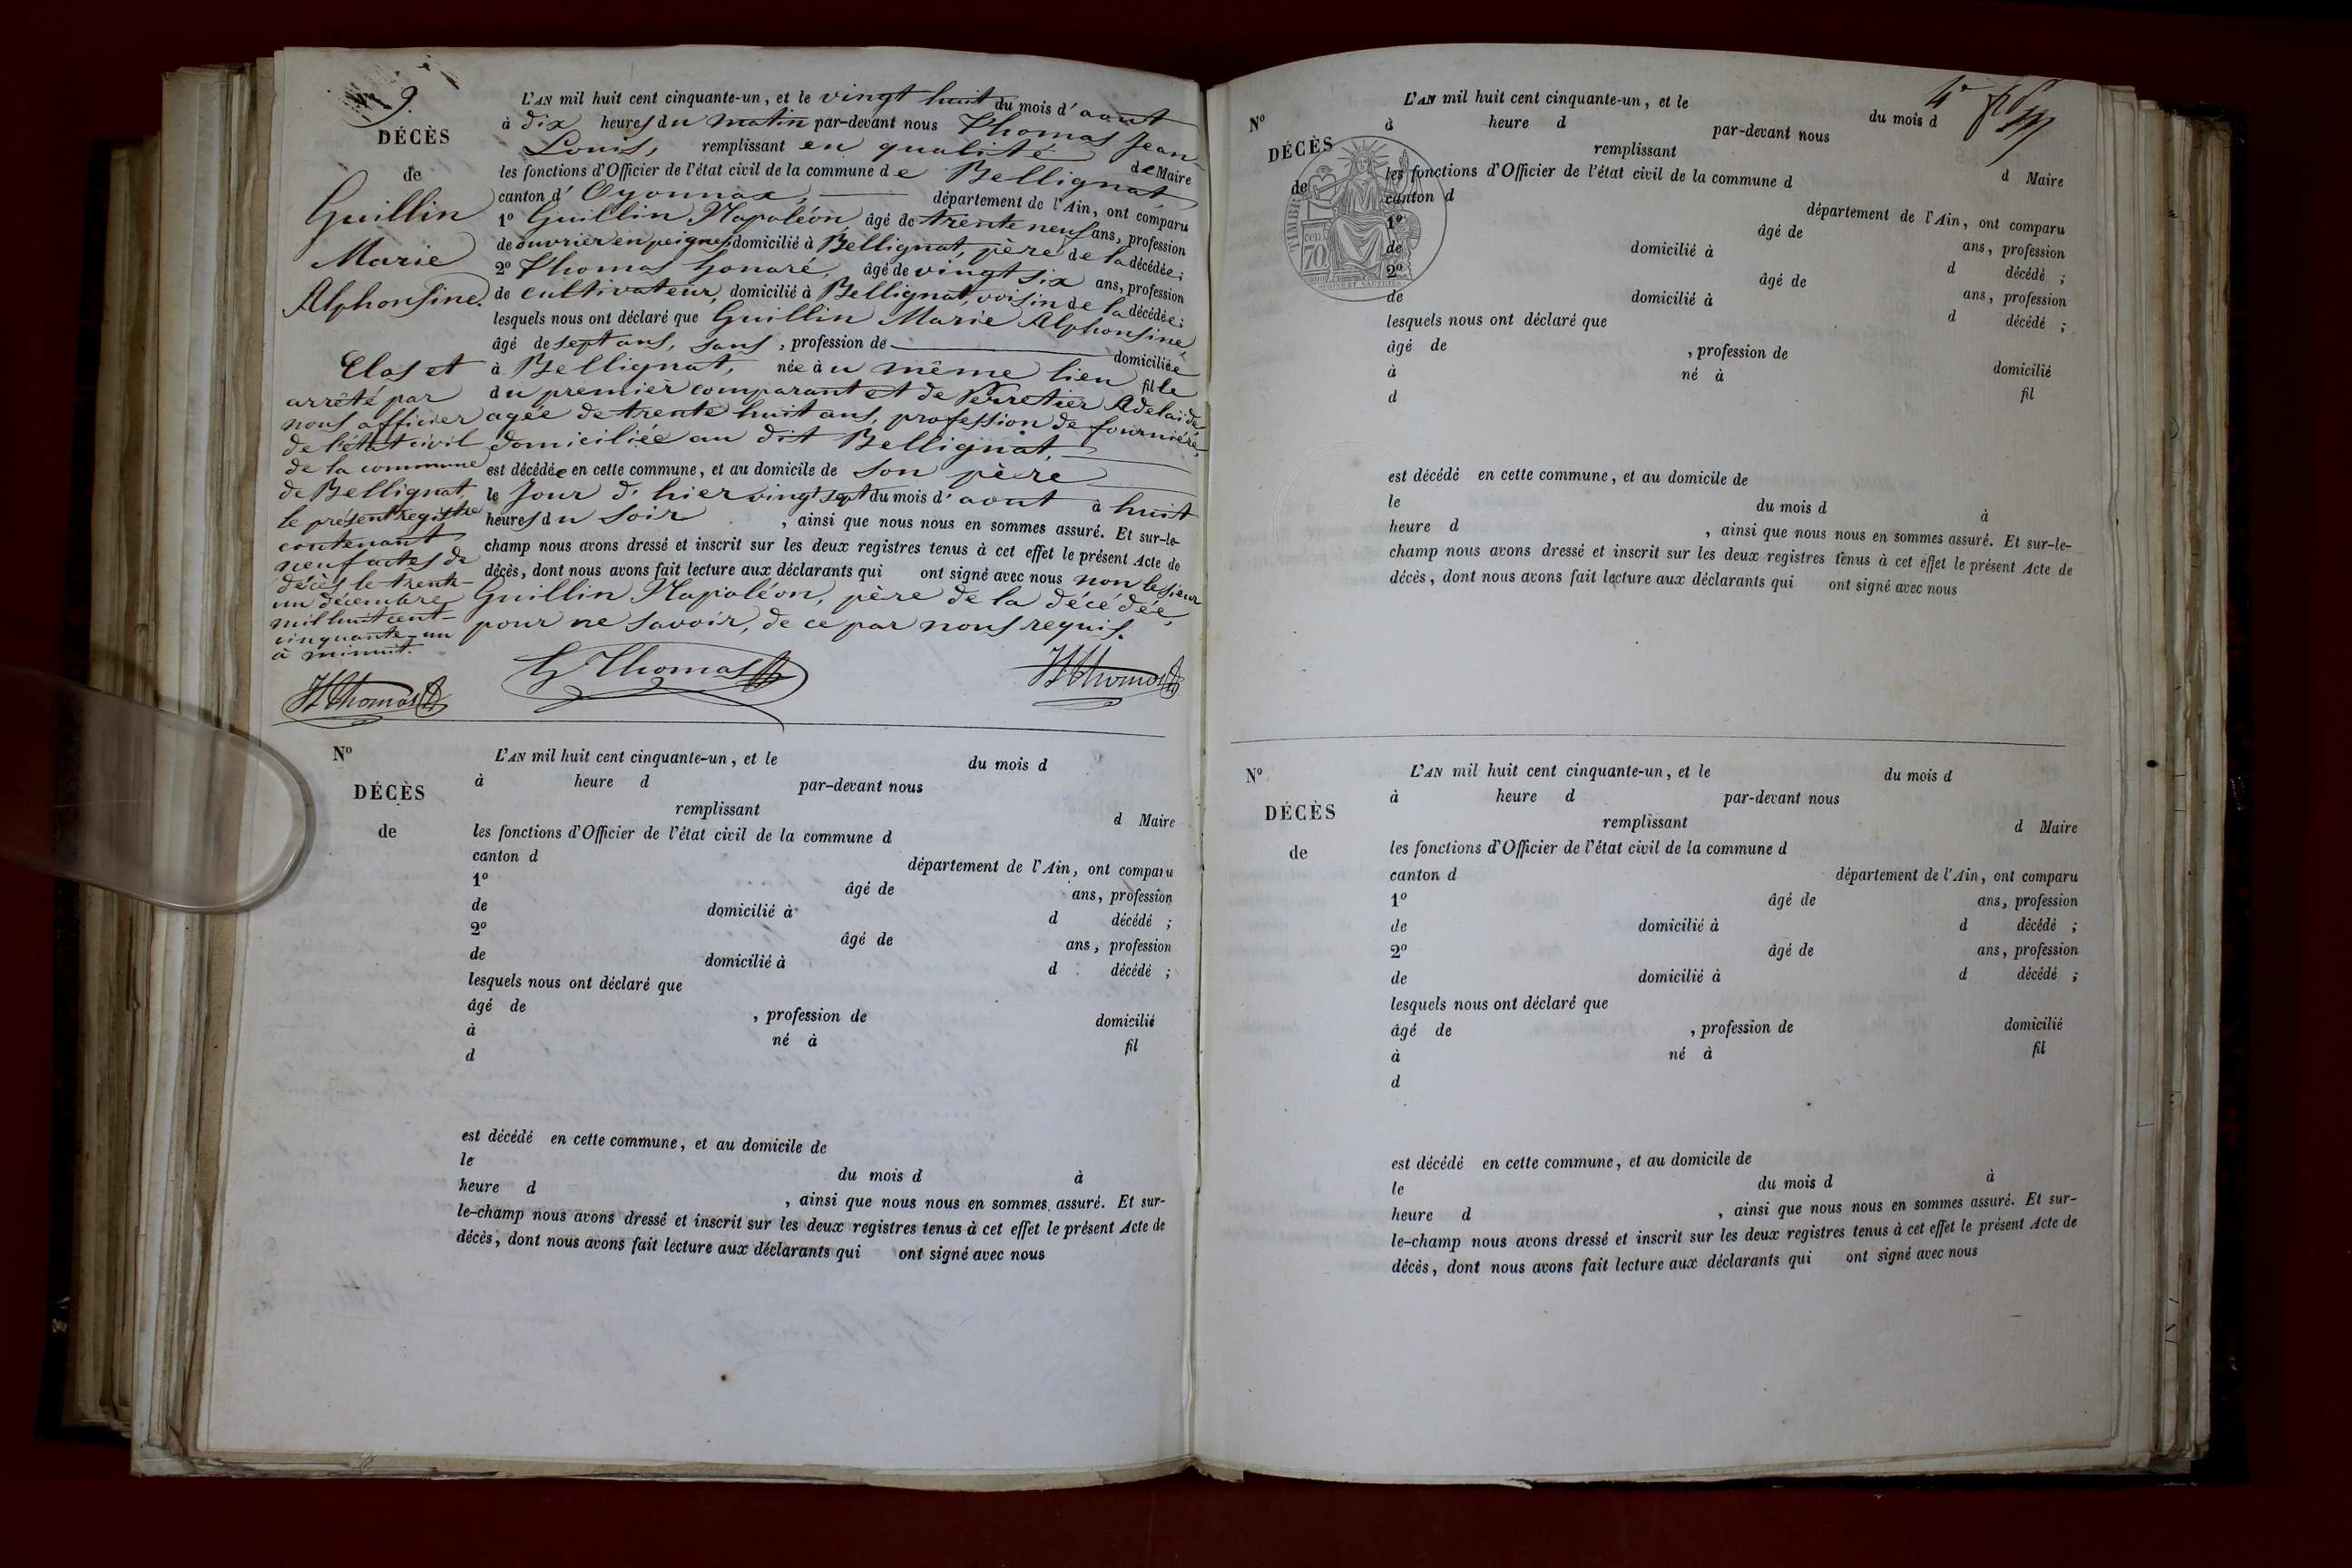 Nº 9.
DÉCÈS
de
Guillin
Marie
Alphonsine.
L'AN mil huit cent cinquante-un, et le vingt huit du mois d'aout
à dix heures du matin par-devant nous Thomas Jean-
Louis, remplissant en qualité de Maire
les fonctions d'Officier de l'état civil de la commune de Bellignat,
canton d'Oyonnax, département de l'Ain, ont comparu
1º Guillin Napoléon, âgé de trente neuf ans, profession
de ouvrier en peignes domicilié à Bellignat, père de la décédée;
2º Thomas Honoré, âgé de vingt six ans, profession
de cultivateur, domicilié à Bellignat, voisin de la décédée;
lesquels nous ont déclaré que Guillin Marie Alphonsine,
âgé de sept ans, sans, profession de domiciliée
à Bellignat, née au même lieu fille
du premier comparant et de Perretier Adelaïde
agée de trente huit ans, profession de fournière,
domiciliée au dit Bellignat,
est décédée en cette commune, et au domicile de son père
le Jour d'hier vingt sept du mois d'aout à huit
heures du soir, ainsi que nous nous en sommes assuré. Et sur-le-
champ nous avons dressé et inscrit sur les deux registres tenus à cet effet le présent Acte de
décès, dont nous avons fait lecture aux déclarants qui ont signé avec nous non le sieur
Guillin Napoléon, père de la décédée,
pour ne savoir, de ce par nous requis.
Clos et
arrêté par
nous officier
de l'état civil
de la commune
de Bellignat,
le présent registre
contenant
neuf actes de
décès le trente-
un décembre
mil huit cent-
cinquante-un
à minuit.
JLThomas
H Thomas
JLThomas
Nº
DÉCÈS
de
L'AN mil huit cent cinquante-un, et le du mois d
à heure d par-devant nous
remplissant d Maire
les fonctions d'Officier de l'état civil de la commune d
canton d département de l'Ain, ont comparu
1º âgé de ans, profession
de domicilié à d décédé ;
2º âgé de ans, profession
de domicilié à d décédé ;
lesquels nous ont déclaré que
âgé de , profession de domicilié
à né à fil
d
est décédé en cette commune, et au domicile de
le du mois d à
heure d , ainsi que nous nous en sommes assuré. Et sur-
le-champ nous avons dressé et inscrit sur les deux registres tenus à cet effet le présent Acte de
décès, dont nous avons fait lecture aux déclarants qui ont signé avec nous
4e
Nº
DÉCÈS
de
TIMBRE
70 cen
L'AN mil huit cent cinquante-un, et le du mois d
à heure d par-devant nous
remplissant d Maire
les fonctions d'Officier de l'état civil de la commune d
canton d département de l'Ain, ont comparu
1º âgé de ans, profession
de domicilié à d décédé ;
2º âgé de ans, profession
de domicilié à d décédé ;
lesquels nous ont déclaré que
âgé de , profession de domicilié
à né à fil
d
est décédé en cette commune, et au domicile de
le du mois d à
heure d , ainsi que nous nous en sommes assuré. Et sur-le-
champ nous avons dressé et inscrit sur les deux registres tenus à cet effet le présent Acte de
décès, dont nous avons fait lecture aux déclarants qui ont signé avec nous
Nº
DÉCÈS
de
L'AN mil huit cent cinquante-un, et le du mois d
à heure d par-devant nous
remplissant d Maire
les fonctions d'Officier de l'état civil de la commune d
canton d département de l'Ain, ont comparu
1º âgé de ans, profession
de domicilié à d décédé ;
2º âgé de ans, profession
de domicilié à d décédé ;
lesquels nous ont déclaré que
âgé de , profession de domicilié
à né à fil
d
est décédé en cette commune, et au domicile de
le du mois d à
heure d , ainsi que nous nous en sommes assuré. Et sur-
le-champ nous avons dressé et inscrit sur les deux registres tenus à cet effet le présent Acte de
décès, dont nous avons fait lecture aux déclarants qui ont signé avec nous